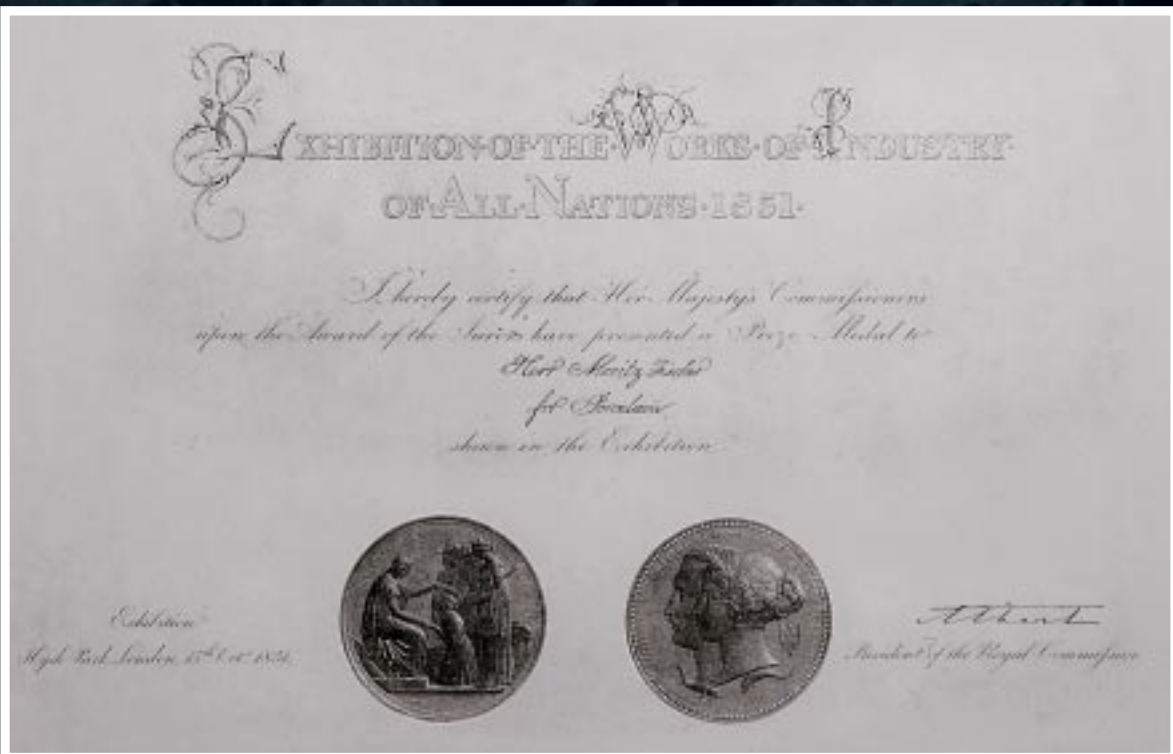 EXHIBITION·OF·THE·WORKS·OF·INDUSTRY·
OF·ALL·NATIONS·1851·
I hereby certify that Her Majesty's Commissioners
upon the Award of the Jurors have presented a Prize Medal to
Herr Moritz Fischer
for Porcelain
shown in the Exhibition
Exhibition
Hyde Park, London, 15th Oct. 1851.
Albert
President of the Royal Commission